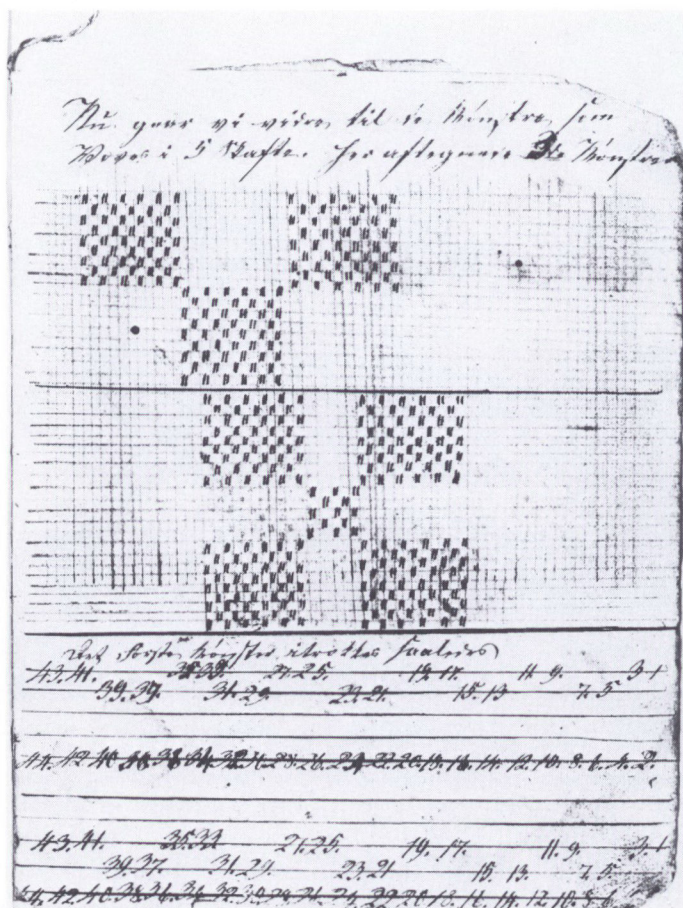 Nu gaar vi videre til de Mönstre som
Væves i 5 Skafte. Her aftegnede 3de Mönstre
Det Første Mönster itrættes saaledes
43. 41. 35 33. 27. 25. 19. 17. 11. 9. 3. 1
39. 37. 31. 29. 23. 21. 15. 13 7. 5
44. 42 40 38 36 34 32 30. 28. 26. 24 22. 20. 18. 16. 14. 12. 10. 8. 6. 4. 2.
43. 41. 35. 33 27. 25. 19. 17. 11. 9. 3. 1
39. 37. 31. 29. 23. 21 15. 13. 7. 5
44. 42. 40. 38. 36. 34 32. 30. 28. 26. 24. 22 20 18. 16. 14. 12. 10. 8 6